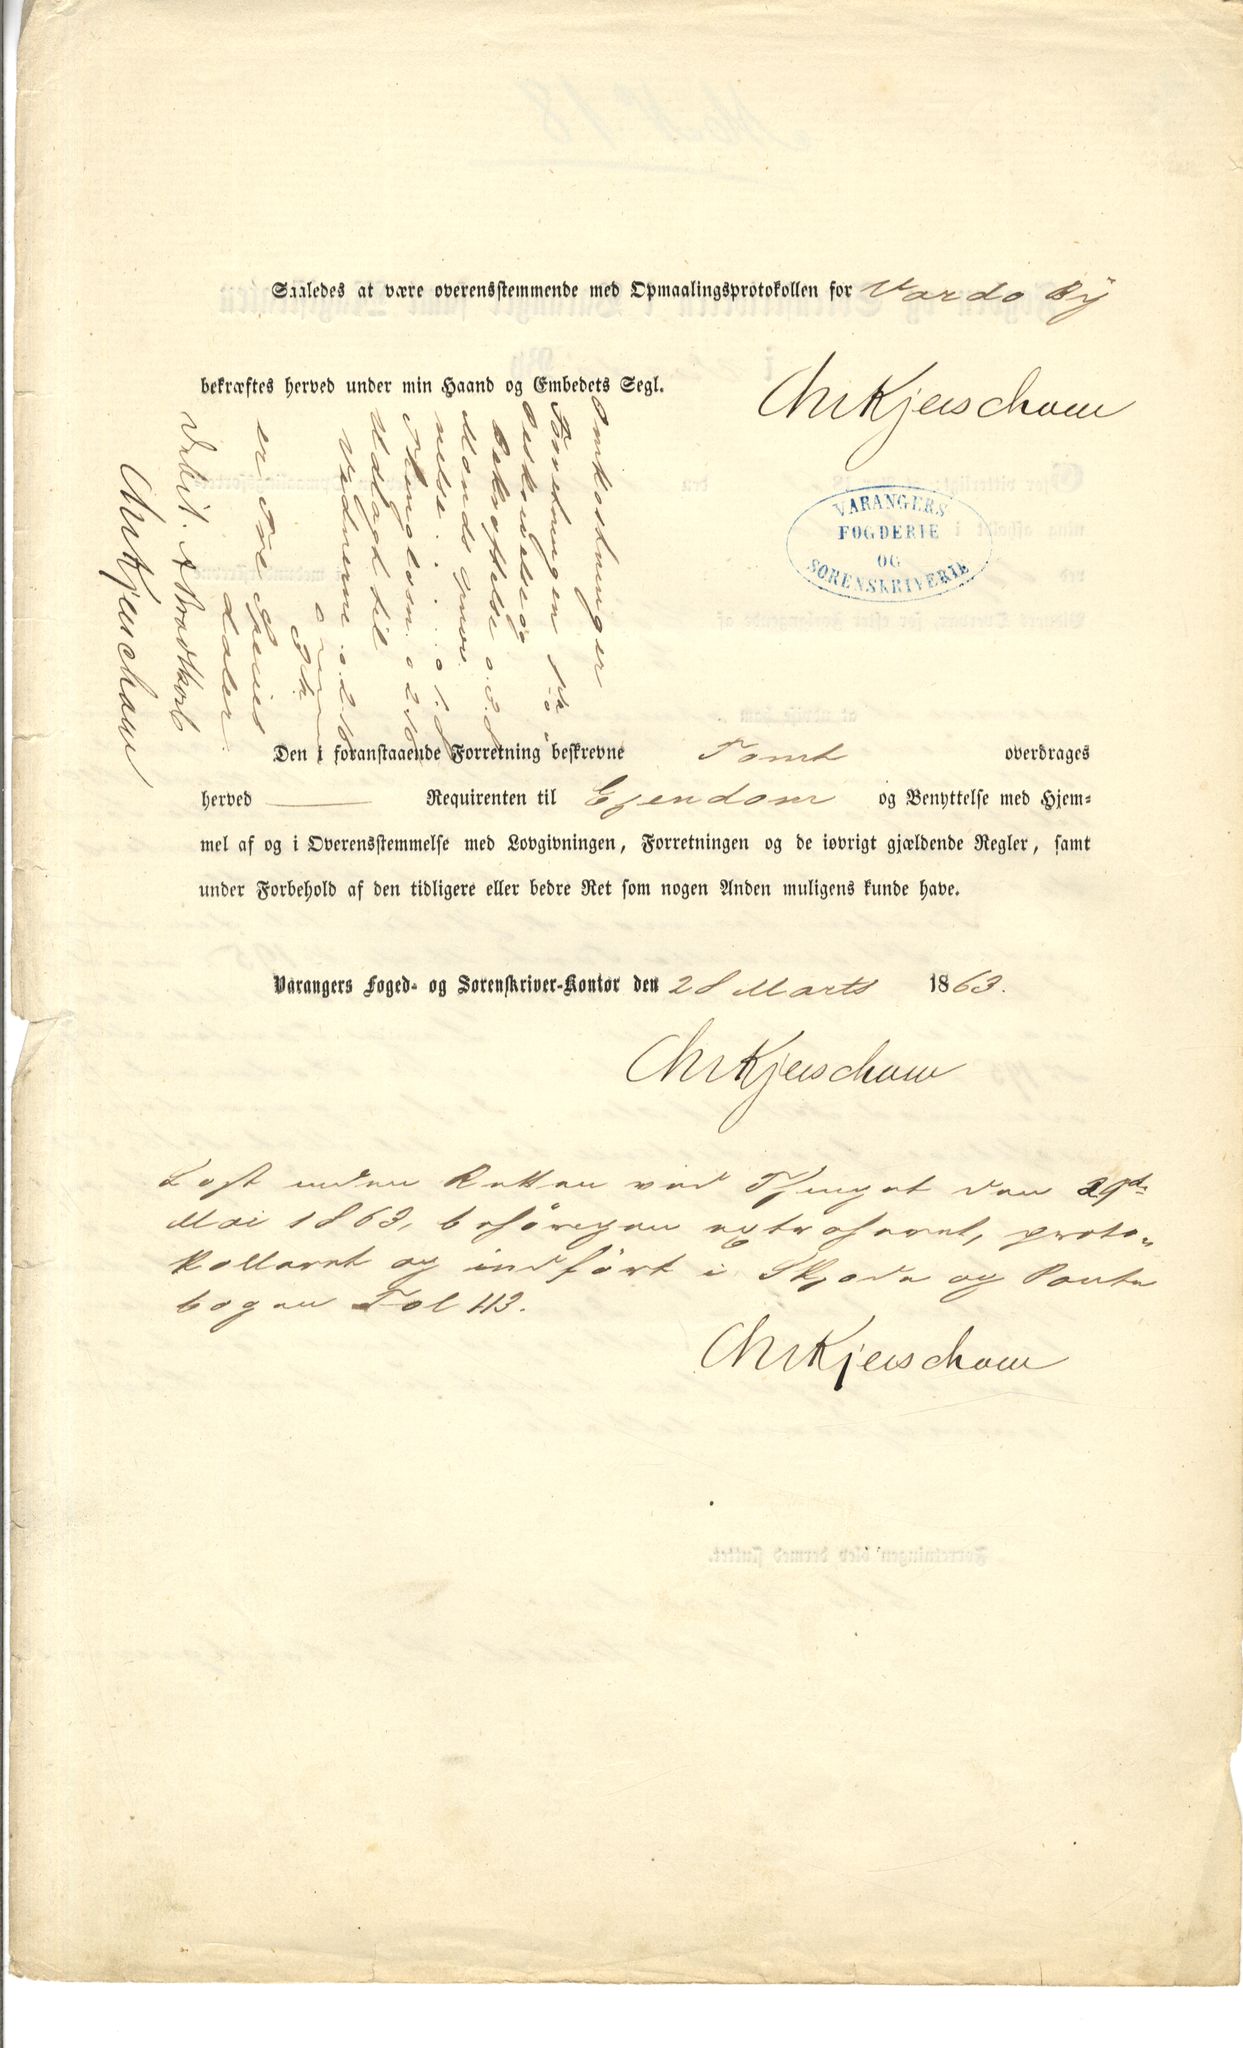 Saaledes at være overensstemmende med Opmaalingsprotokollen for Vardø By
bekræftes herved under min Haand og Embedets Segl.
Chr Kjerschow
VARANGERS
FOGDERIE
OG
SØRENSKRIVERIE
Omkostninger
Forretningen
Beskrivelse og
Bekræftelse " 3. "
Mænds
nelse
Thinglæsn.
Udlagt til
Vidnerne
er Fire Specie
daler
Debit.
Chr Kjerschow
Den i foranstaaende Forretning beskrevne Tomt overdrages
herved — Requirenten til Ejendom og Benyttelse med Hjem=
mel af og i Overensstemmelse med Lovgivningen, Forretningen og de iøvrigt gjældende Regler, samt
under Forbehold af den tidligere eller bedre Ret som nogen Anden muligens kunde have.
Varangers Foged- og Sorenskriver-Kontor den 28 Marts 1863.
Chr Kjerschow
Læst inden Retten ved Thinget den 29de
Mai 1863, behørigen extraheret, proto=
kolleret og indført i Skjøde og Pante
bogen Fol 113.
Chr Kjerschow